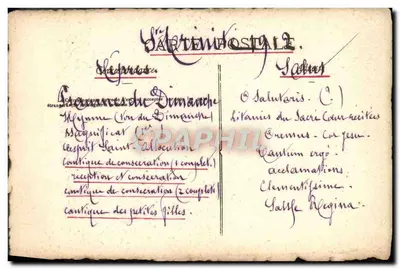 CARTE POSTALE
1912.
Vêpres
Psaumes du Dimanche
Hymne (ton du Dimanche)
Magnificat
Esprit Saint. Allocution
Cantique de consécration (1 couplet)
réception et consécration
cantique de consécration (2 couplets)
cantique des petites filles.
Salut
O Salutaris.
Litanies du Sacré Coeur récitées
Oremus - Cor Jesu
Tantum ergo
acclamations
Clementissime
Salve Regina